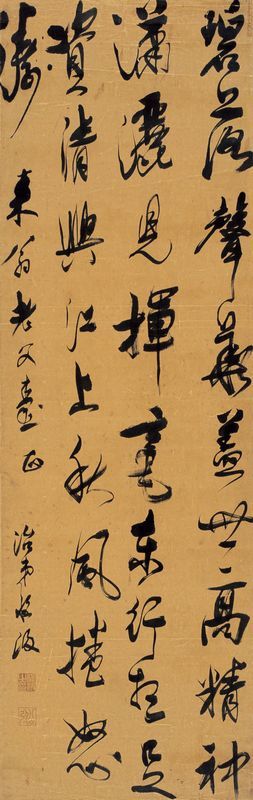 碧落聲華蓋世高精神
瀟灑見揮毫東行想足
資清興江上秋風捲怒
濤
來翁老父臺正
治弟